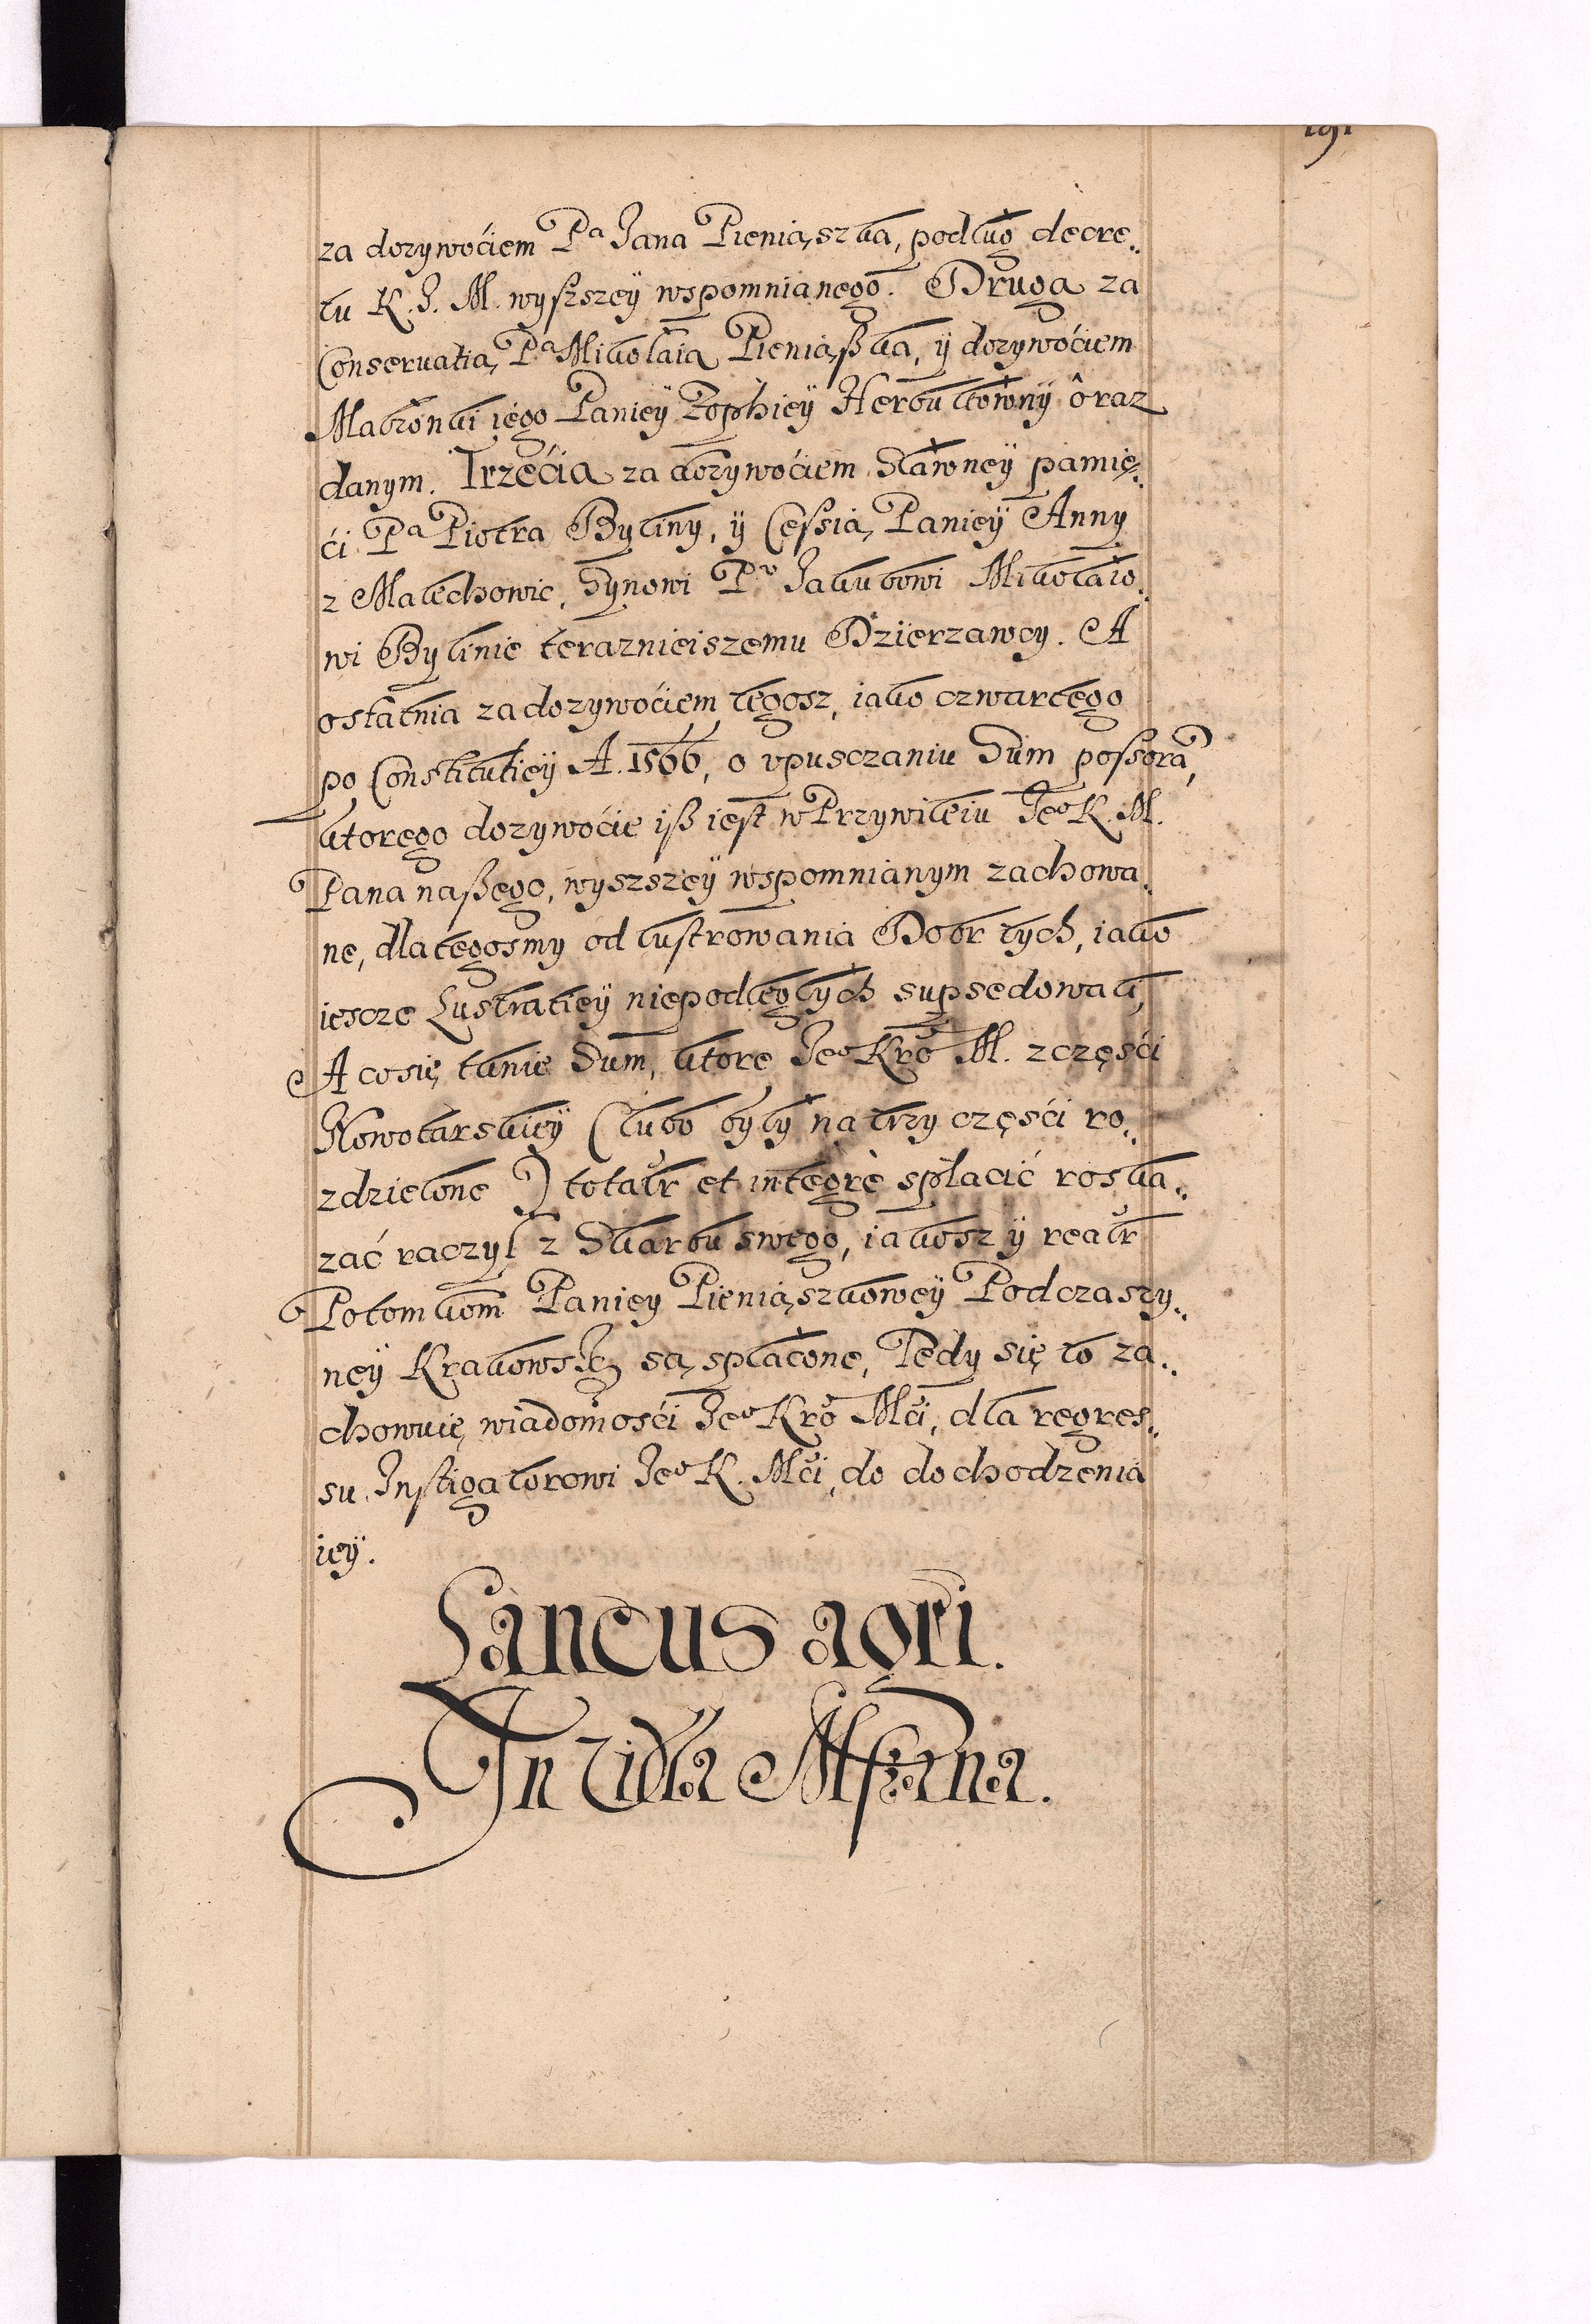 191
za dozywoćiem Pa Jana Pieniąszka, podług decre„
tu K. J. M. wyszszey wspomnianego. Druga za
Conservatią Pa Mikołaia Pieniąßka, ÿ dozywoćiem
Małzonki iego Paniey Zophiey Herbułtowny oraz
danym. Trzećia za dozywoćiem Sławney pamię„
ći Pa Piotra Byliny, ÿ Cessią Paniey Anny
z Malechowic, Synowi Pu Jakubowi Mikołaio„
wi Bylinie terazniejszemu Dzierzawcy. A
ostatnia za dozywoćiem tegosz, iako czwartego
po Constitutiey A. 1566, o vpusczaniu Sum possora,
ktorego dozywoćie iß iest w Przywileiu Jeo K. M.
Pana naßego, wyszszey wspomnianym zachowa„
ne, dlategosmy od lustrowania Dobr tych, iako
iescze Lustratiey niepodległych supsedowali,
A cosię tknie Sum, ktore Jeo Kro M. z częsci
Nowotarskiey (lubo były na trzy częsći ro„
zdzielone) totalr et integrè spłacić roska„
zać raczył z Skarbu swego, iakosz ÿ realr
Potomkom Paniey Pieniąszkowey Podczaszy„
ney Krakowsk są spłacone, Tedy się to za„
chowuie wiadomośći Jeo Kro Mći, dla regres„
su Instigatorowi Jeo K. Mći, do dochodzenia
iey.
Lancus agri.
In Villa Mszana.